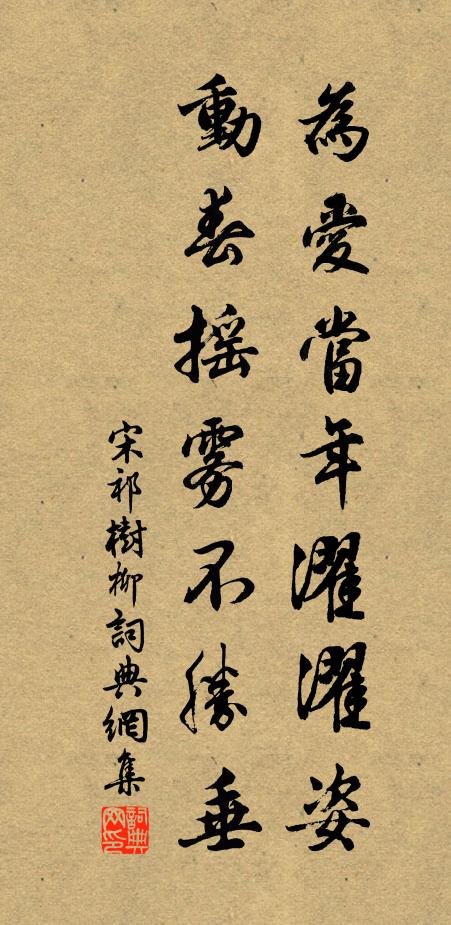 為愛當年濯濯姿
動春摇雾不勝垂
宋祁樹柳詞典網集
詞典网印